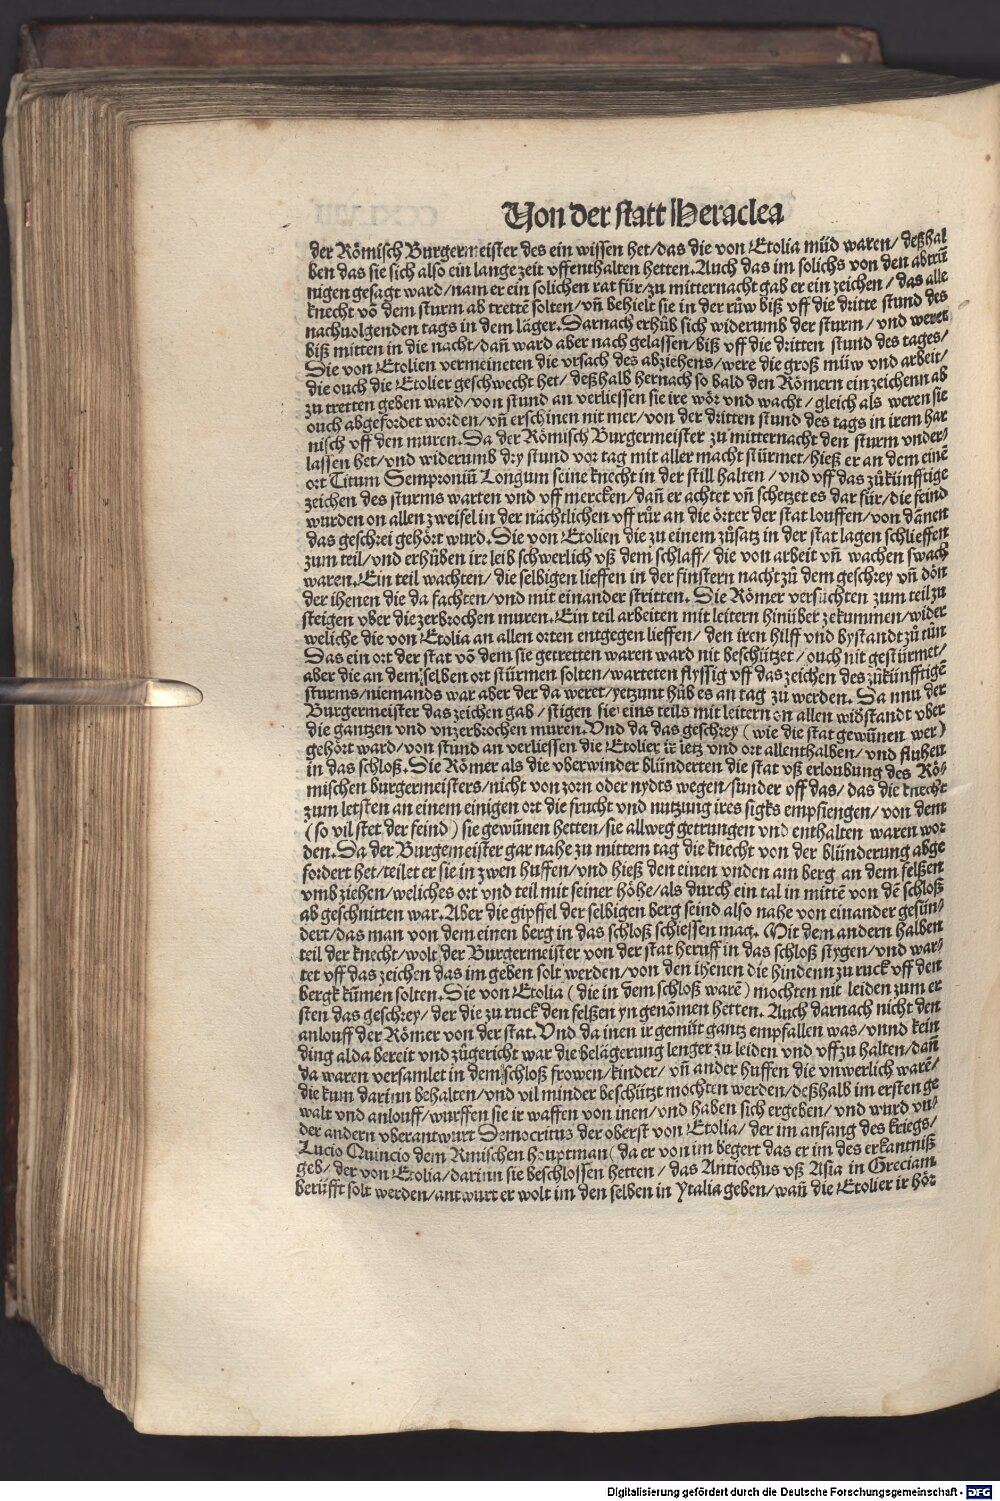 Von der statt Heraclea
der Römisch Burgermeister des ein wissen het/das die von Etolia müd waren/ deßhal
ben das sie sich also ein lange zeit vffenthalten hetten. Auch das im solichs von den abtrün̄
nigen gesagt ward/nam er ein solichen rat für/zu mitternacht gab er ein zeichen/ das alle
knecht vō dem sturm ab trettē solten/ vn̄ behielt sie in der růw biß vff die dritte stund des
nachuolgenden tags in dem läger. Darnach erhůb sich widerumb der sturm/ vnd weret
biß mitten in die nacht/dan̄ ward aber nach gelassen/biß vff die dritten stund des tages/
Die von Etolien vermeineten die vrsach des abziehens/were die groß müw vnd arbeit/
die ouch die Etolier geschwecht het/ deßhalb hernach so bald den Römern ein zeichenn ab
zu tretten geben ward/von stund an verliessen sie ire wör vnd wacht/ gleich als weren sie
ouch abgefordet worden/vn̄ erschinen nit mer/von der dritten stund des tags in irem har
nisch vff den muren. Da der Römisch Burgermeister zu mitternacht den sturm vnder/
lassen het/vnd widerumb dry stund vor tag mit aller macht stürmet/hieß er an dem einē
ort Titum Semproniū Longum seine knecht in der still halten/ vnd vff das zůkünfftige
zeichen des sturms warten vnd vff mercken/ dan̄ er achtet vn̄ schetzet es dar für/die feind
wurden on allen zweifel in der nächtlichen vff růr an die örter der stat louffen/von dānen
das geschrei gehört wurd. Die von Etolien die zu einem zůsatz in der stat lagen schlieffen
zum teil/vnd erhůben ire leib schwerlich vß dem schlaff/ die von arbeit vn̄ wachen swach
waren. Ein teil wachten/ die selbigen lieffen in der finstern nacht zů dem geschrey vn̄ dön
der ihenen die da fachten/vnd mit einander stritten. Die Römer versůchten zum teil zu
steigen vber die zerbrochen muren. Ein teil arbeiten mit leitern hinüber zekummen/wider
weliche die von Etolia an allen orten entgegen lieffen/ den iren hilff vnd bystandt zů tůn
Das ein ort der stat vō dem sie getretten waren ward nit beschützet/ ouch nit gestürmet/
aber die an dem selben ort stürmen solten/warteten flyssig vff das zeichen des zůkünfftigē
sturms/niemands war aber der da weret/yetzunt hůb es an tag zů werden. Da nnu der
Burgermeister das zeichen gab/ stigen sie eins teils mit leitern on allen widstandt vber
die gantzen vnd vnzerbrochen muren. Vnd da das geschrey (wie die stat gewūnen wer)
gehört ward/von stund an verliessen die Etolier ir letz vnd ort allenthalben/ vnd fluhen
in das schloß. Die Römer als die vberwinder blünderten die stat vß erloubung des Rö/
mischen burgermeisters/nicht von zorn oder nydts wegen/sunder vff das/ das die knecht
zum letsten an einem einigen ort die frucht vnd nutzung ires sigks empfiengen/ von dem
(so vil stet der feind) sie gewūnen hetten/sie allweg getrungen vnd enthalten waren wor
den. Da der Burgemeister gar nahe zu mittem tag die knecht von der blünderung abge
fordert het/teilet er sie in zwen huffen/vnd hieß den einen vnden am berg an dem felßen
vmb ziehen/weliches ort vnd teil mit seiner höhe/als durch ein tal in mittē von dē schloß
ab geschnitten war. Aber die gipffel der selbigen berg seind also nahe von einander gesün/
dert/das man von dem einen berg in das schloß schiessen mag. Mit dem andern halben
teil der knecht/wolt der Burgermeister von der stat heruff in das schloß stygen/vnd war/
tet vff das zeichen das im geben solt werden/von den ihenen die hindenn zu ruck vff den
bergk kūmen solten. Die von Etolia (die in dem schloß warē) mochten nit leiden zum er
sten das geschrey/ der die zu ruck den felßen yn genōmen hetten. Auch darnach nicht den
anlouff der Römer von der stat. Vnd da inen ir gemüt gantz empfallen was/vnnd kein
ding alda bereit vnd zůgericht war die belägerung lenger zu leiden vnd vff zu halten/dan̄
da waren versamlet in dem schloß frowen/kinder/ vn̄ ander huffen die vnwerlich warē/
die kum darinn behalten/vnd vil minder beschützt mochten werden/deßhalb im ersten ge
walt vnd anlouff/wurffen sie ir waffen von inen/vnd haben sich ergeben/ vnd wurd vn/
der andern vberantwurt Democritus der oberst von Etolia/ der im anfang des kriegs/
Lucio Quincio dem Rmischen houptman (da er von im begert das er im des erkantniß
geb/ der von Etolia/darinn sie beschlossen hetten/ das Antiochus vß Asia in Greciam
berüfft solt werden/antwurt er wolt im den selben in Ytalia geben/wan̄ die Etolier ir hör
Digitalisierung gefördert durch die Deutsche Forschungsgemeinschaft - DFG